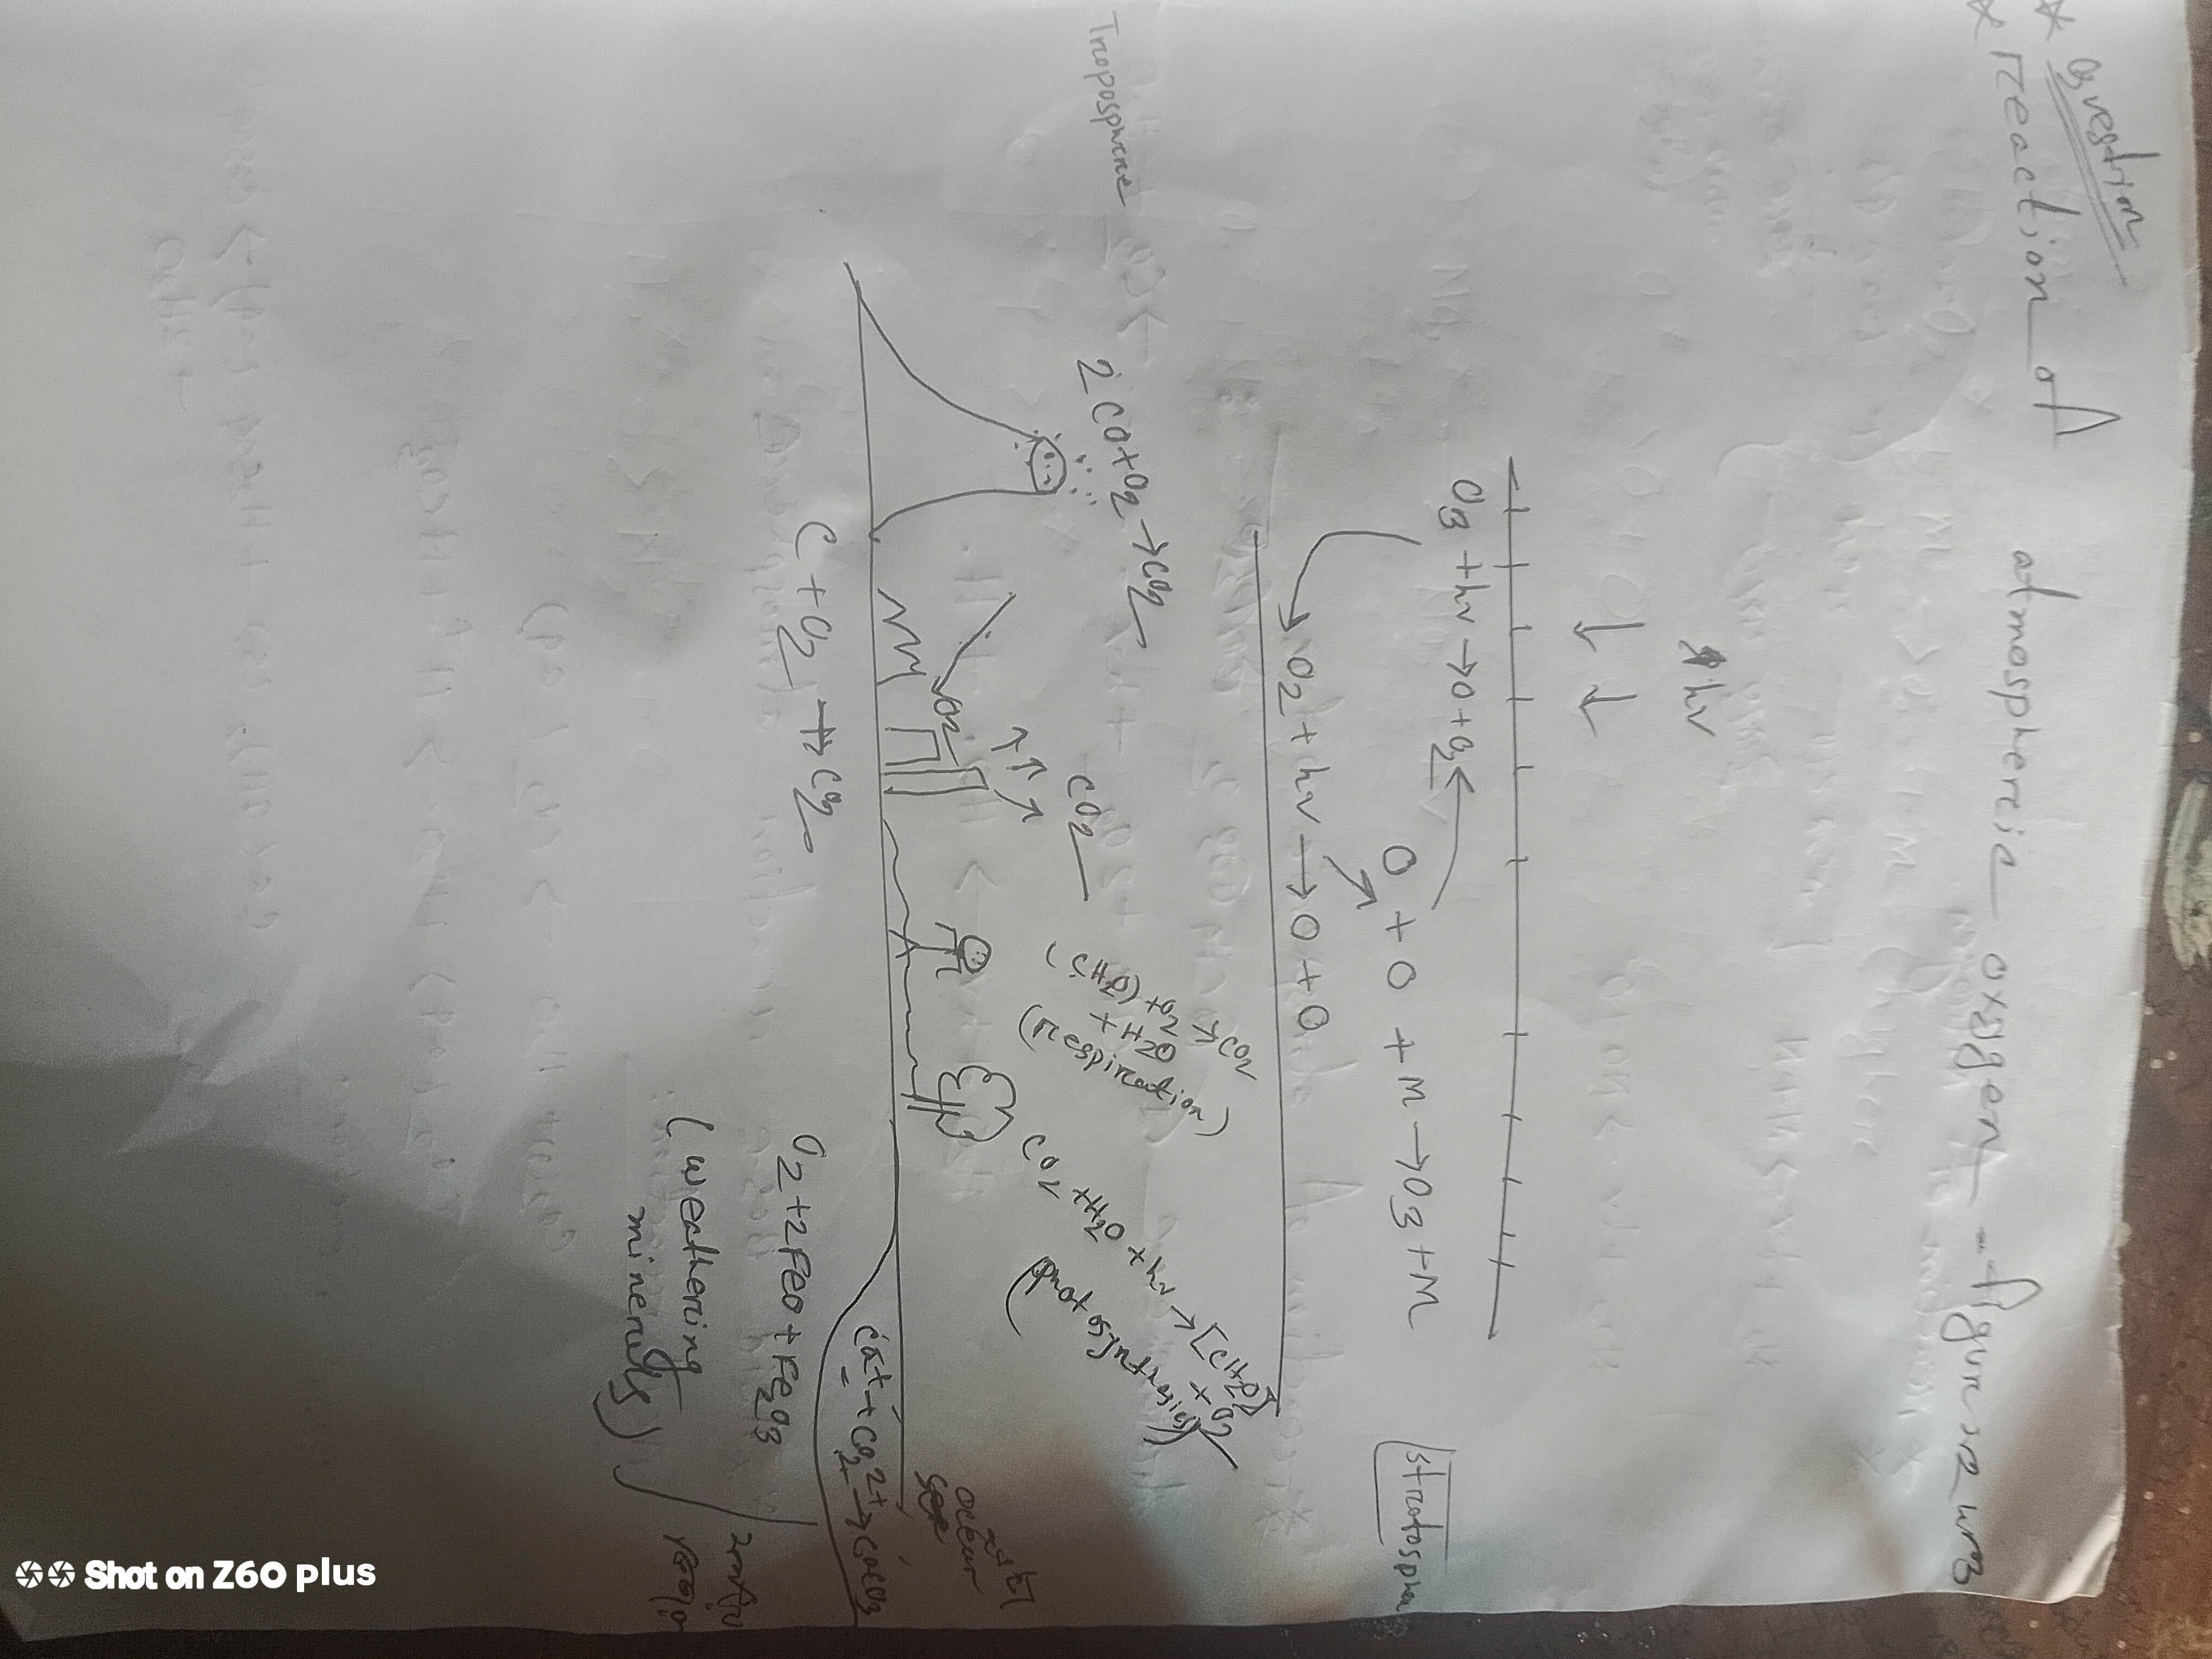 * Question
* reaction of atmospheric oxygen - figure
hv
O3 + hv → O + O2
O + O + M → O3 + M
Stratosphe
O2 + hv → O + O
Troposphere
2CO + O2 → CO2
CO2
{CH2O} + O2 → CO2
+ H2O
(respiration)
CO2 + H2O + hv → {CH2O}
+ O2
(photosynthesis)
O2
ocean
Ca2+ + CO3 2+ → CaCO3
C + O2 → CO2
O2 + 2FeO + Fe2O3
(weathering
minerals)
Shot on Z60 plus